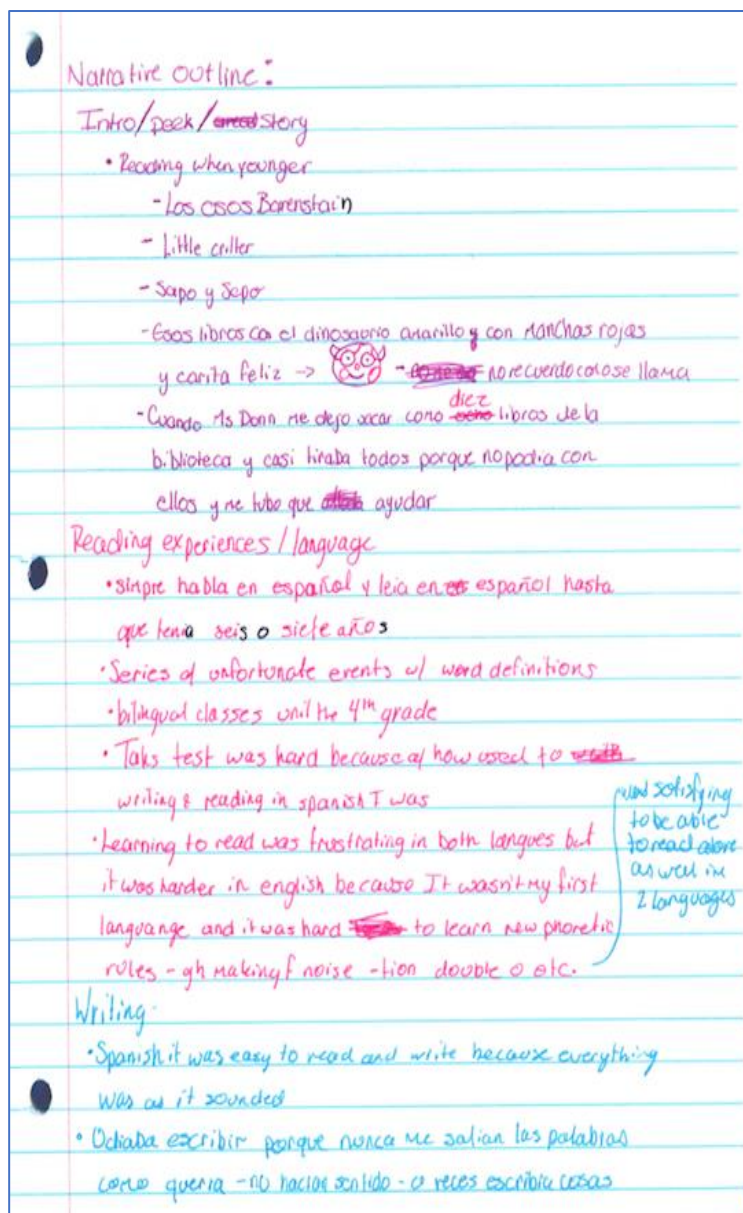 Narrative outline:
Intro/peek/ story
• Reading when younger
- Los osos Barenstain
- Little critter
- Sapo y Sepo
- Esos libros co el dinosaurio amarillo y con manchas rojas
y carita feliz → - no recuerdo como se llama
- Cuando Ms. Donn me dejo sacar como diez libros de la
biblioteca y casi tiraba todos porque no podia con
ellos y me tubo que ayudar
Reading experiences / language
• simpre habla en español y leia en español hasta
que tenia seis o siete años
• Series of unfortunate events w/ word definitions
• bilingual classes until the 4th grade
• Taks test was hard because of how used to
writing & reading in spanish I was
• Learning to read was frustrating in both langues but
it was harder in english because It wasn't my first
languange and it was hard to learn new phonetic
rules - gh making f noise - tion double o etc.
satisfying
to be able
to read alone
as well in
2 languages
Writing
• Spanish it was easy to read and write because everything
was as it sounded
• Odiaba escribir porque nunca me salian las palabras
como queria - no hacian sentido - a veces escribia cosas